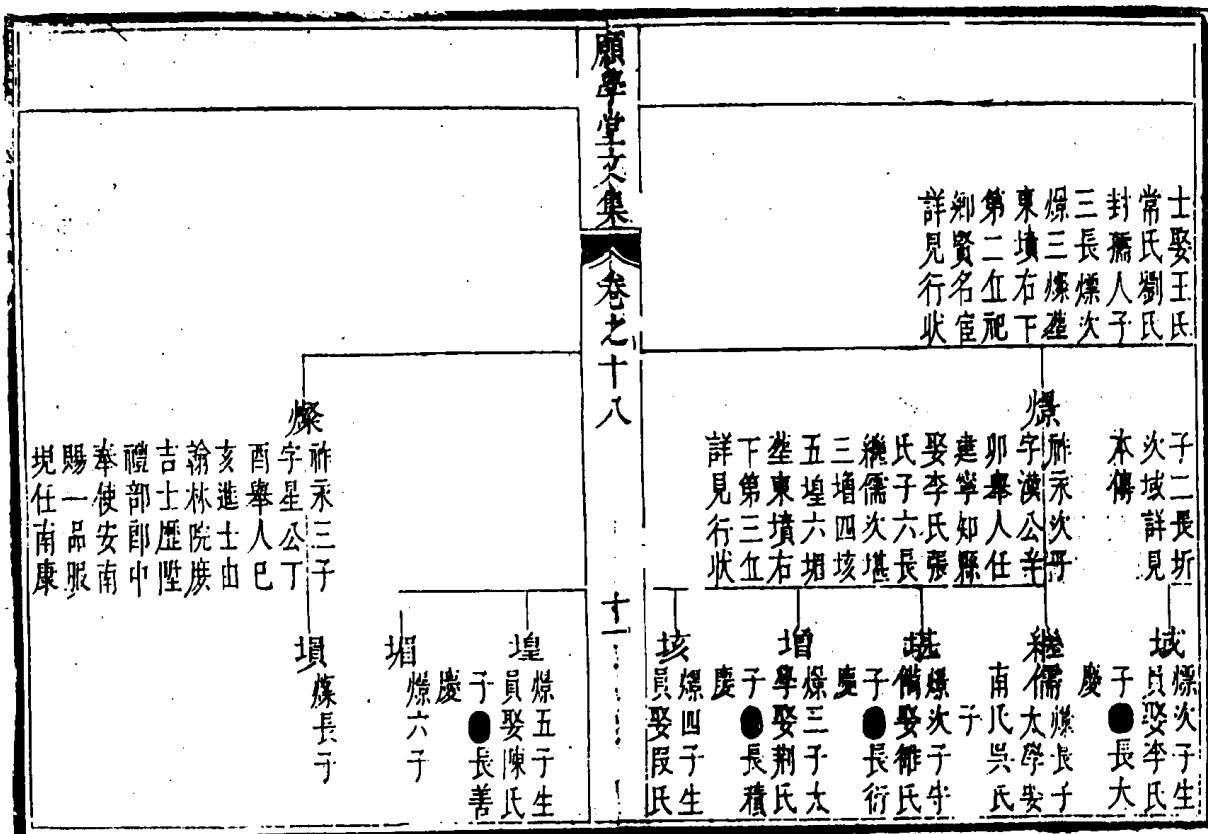 士娶王氏
常氏劉氏
封孺人子
三長燝次
燝三燦塟
東墳右下
第二丘祀
鄉賢名宦
詳見行狀
子二長圻
次域詳見
本傳
燝
祚永次子
字漢公辛
卯舉人任
建寧知縣
娶李氏張
氏子六長
繼儒次堪
三增四垓
五堭六堳
塟東墳右
下第三丘
詳見行狀
域
次子生
員娶李氏
子長大
慶
繼儒
長子
太學
南氏吳氏
子
堪
燝次子
娶
子長衍
慶
增
燝三子太
學娶荆氏
子長積
慶
垓
燝四子生
員娶段氏
願學堂文集
卷之十八
十一
燦
祚永三子
字星公丁
酉舉人己
亥進士由
翰林院庶
吉士歷陞
禮部郎中
奉使安南
賜一品服
現任南康
堭
燝五子生
員娶陳氏
子長善
慶
堳
燝六子
塤
燦長子